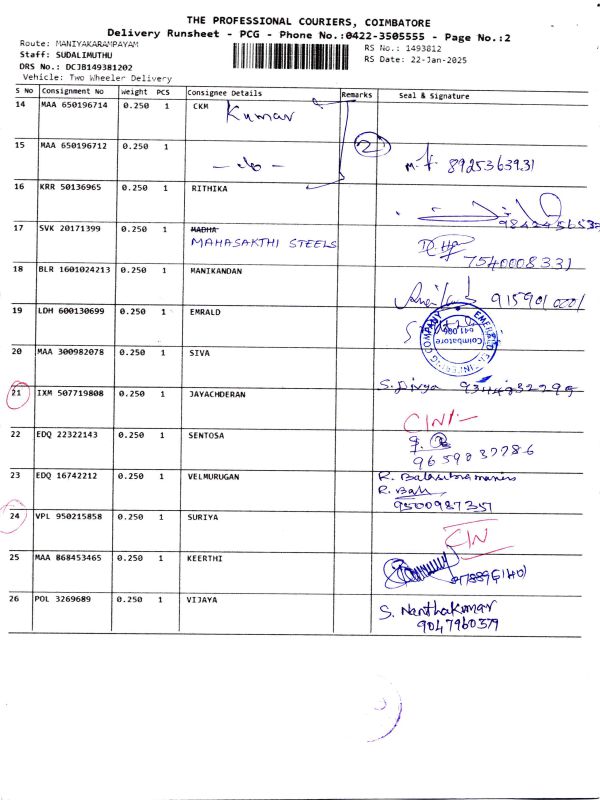 THE PROFESSIONAL COURIERS, COIMBATORE
Delivery Runsheet - PCG - Phone No.:0422-3505555 - Page No.:2
Route: MANIYAKARAMPAYAM
RS No.: 1493812
Staff: SUDALIMUTHU
RS Date: 22-Jan-2025
DRS No.: DCJB149381202
Vehicle: Two Wheeler Delivery
S No Consignment No Weight PCS Consignee Details Remarks Seal & Signature
14 MAA 650196714 0.250 1 CKM
Kumar
2
15 MAA 650196712 0.250 1
- do -
8925363931
16 KRR 50136965 0.250 1 RITHIKA
17 SVK 20171399 0.250 1 MADHA
MAHASAKTHI STEELS
7540008331
18 BLR 1601024213 0.250 1 MANIKANDAN
19 LDH 600130699 0.250 1 EMRALD
Coimbatore
20 MAA 300982078 0.250 1 SIVA
S. Divya
21 IXM 507719808 0.250 1 JAYACHDERAN
22 EDQ 22322143 0.250 1 SENTOSA
9659837786
23 EDQ 16742212 0.250 1 VELMURUGAN
R. Bala
9500987351
24 VPL 950215858 0.250 1 SURIYA
25 MAA 868453465 0.250 1 KEERTHI
26 POL 3269689 0.250 1 VIJAYA
S. Nanthakumar
9047960379